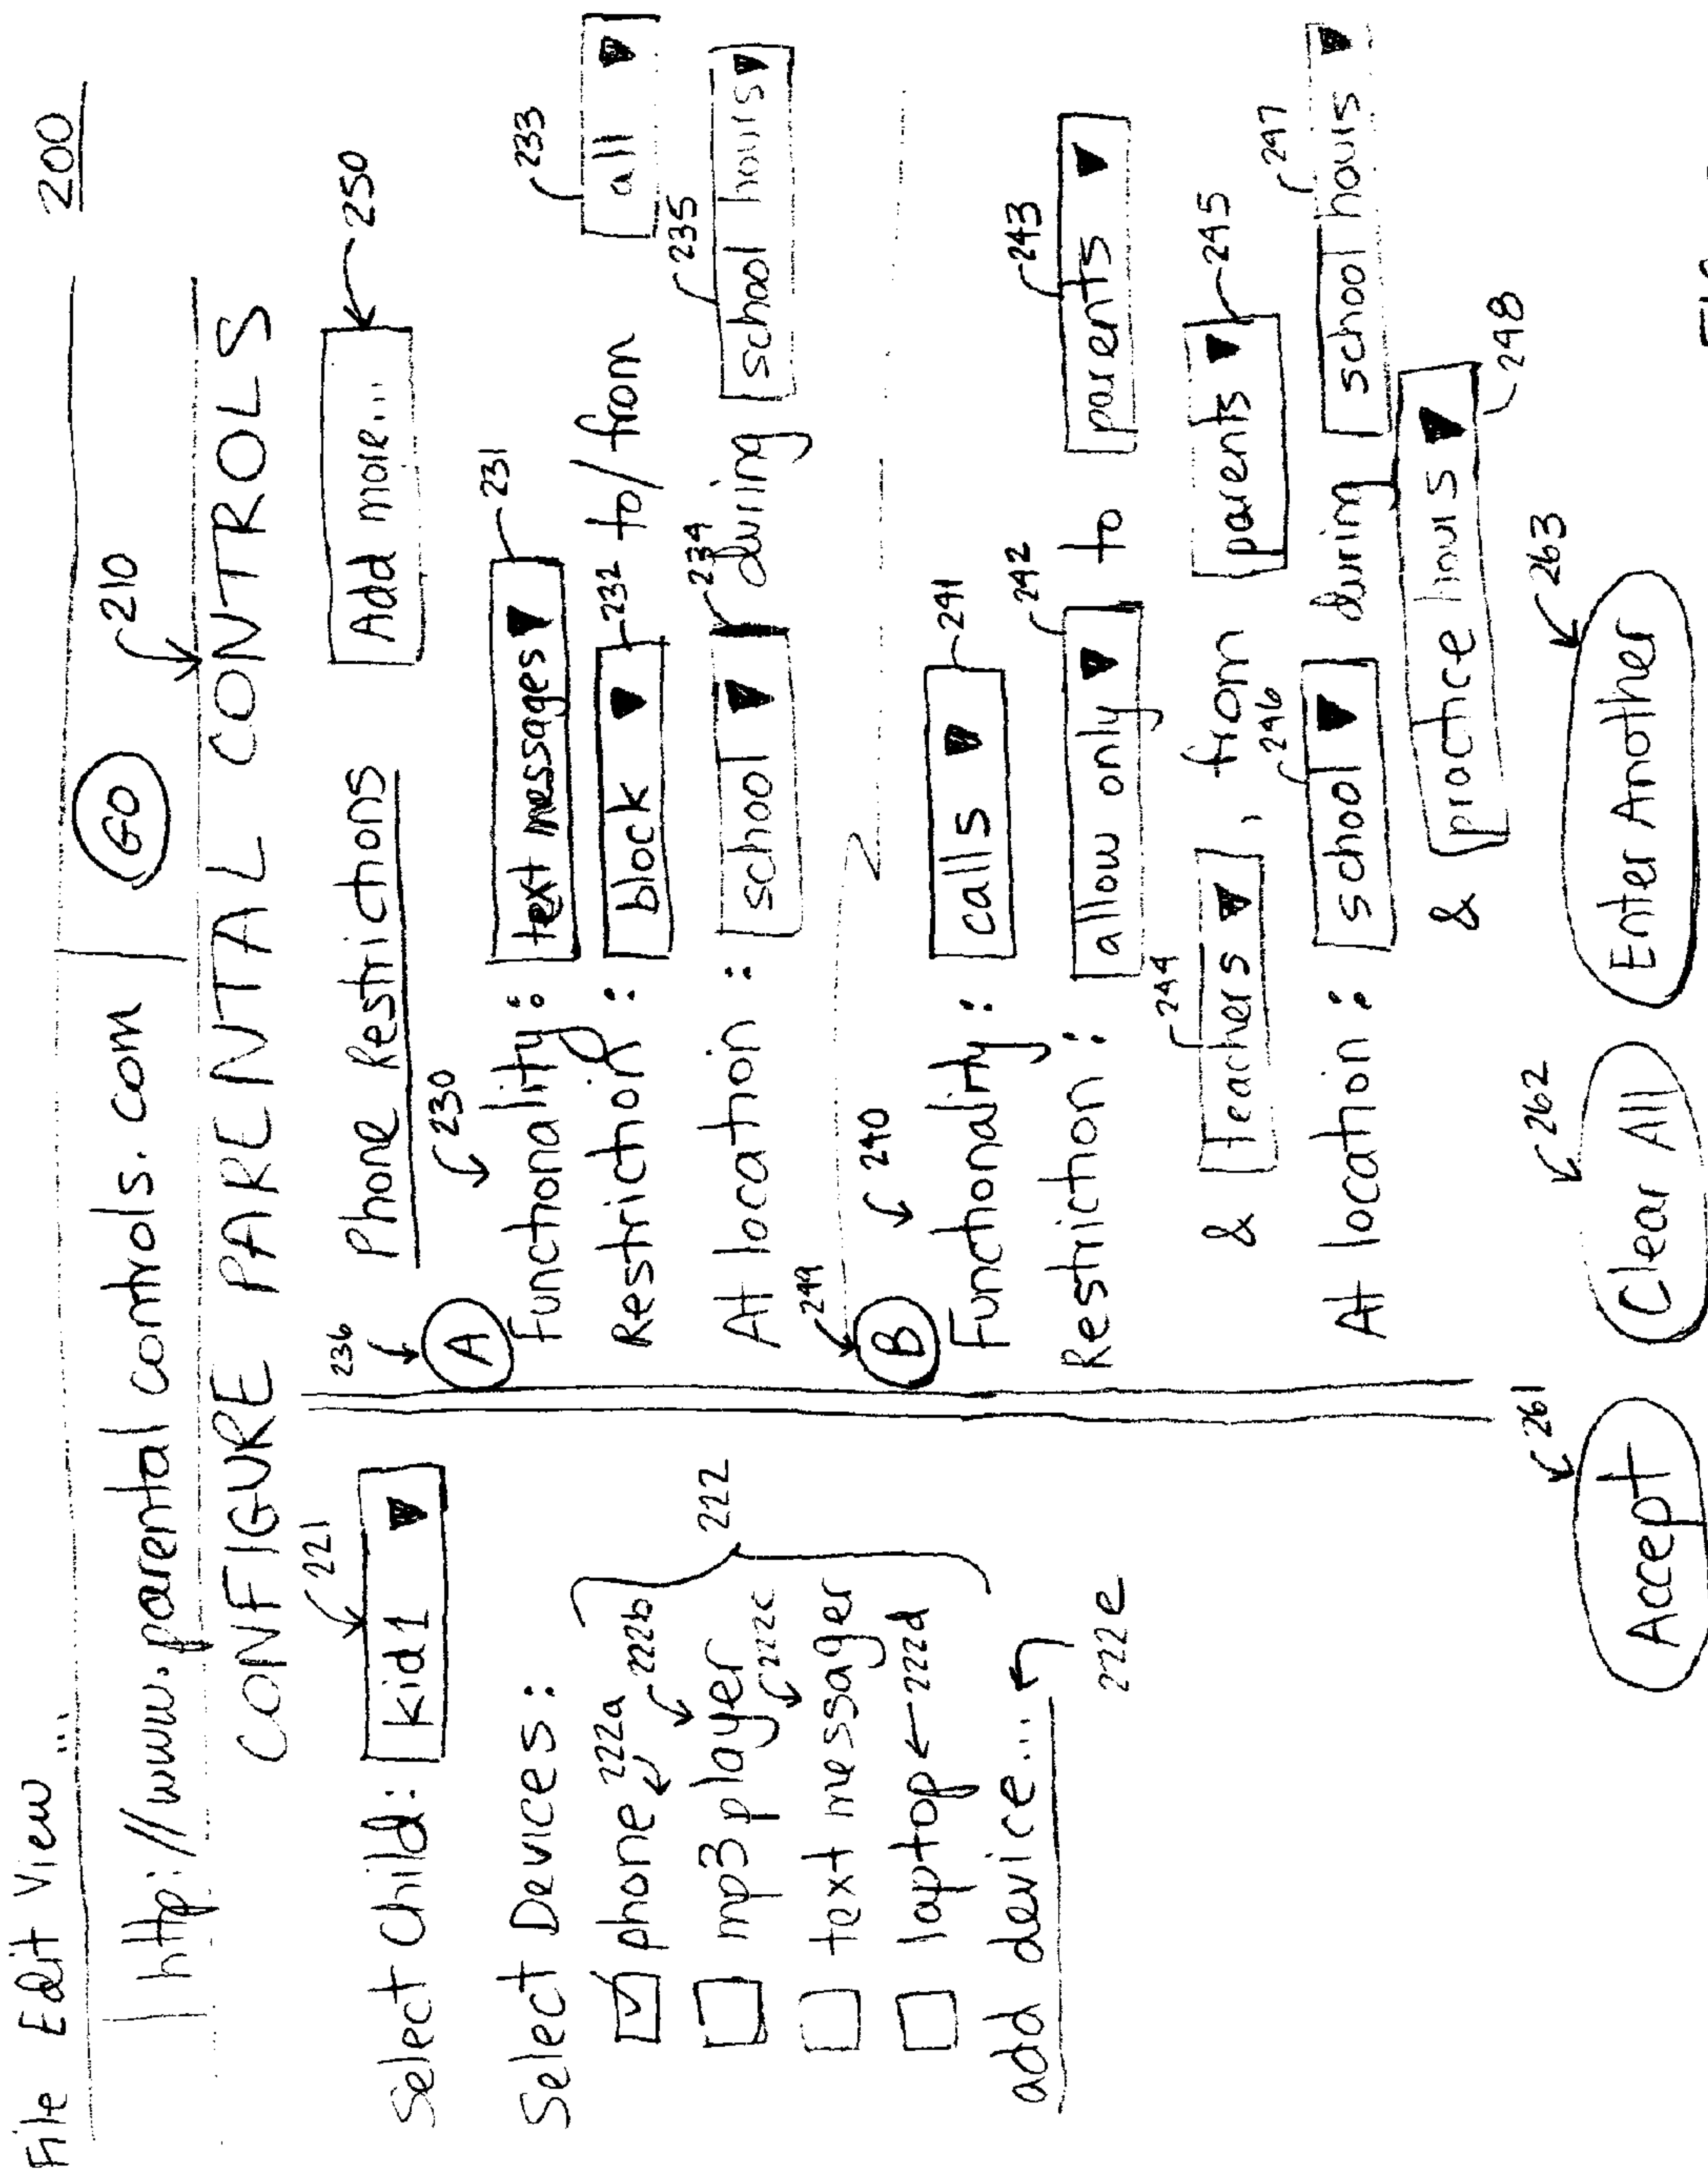 File Edit View ...
200
http://www.parentalcontrols.com
GO
210
CONFIGURE PARENTAL CONTROLS
221
Select Child: kid1
Select Devices:
phone 222a
222b
mp3 player
222c
text messager
laptop 222d
222
add device...
222e
Phone Restrictions
Add more...
250
236
230
A
Functionality: text messages
231
Restriction: block 232 to/from all
233
At location: school 234 during school hours
235
249
240
B
Functionality: calls
241
Restriction: allow only to parents
242
243
& teachers, from parents
244
245
At location: school during school hours
246
247
& practice hours
248
Accept
261
Clear All
262
Enter Another
263